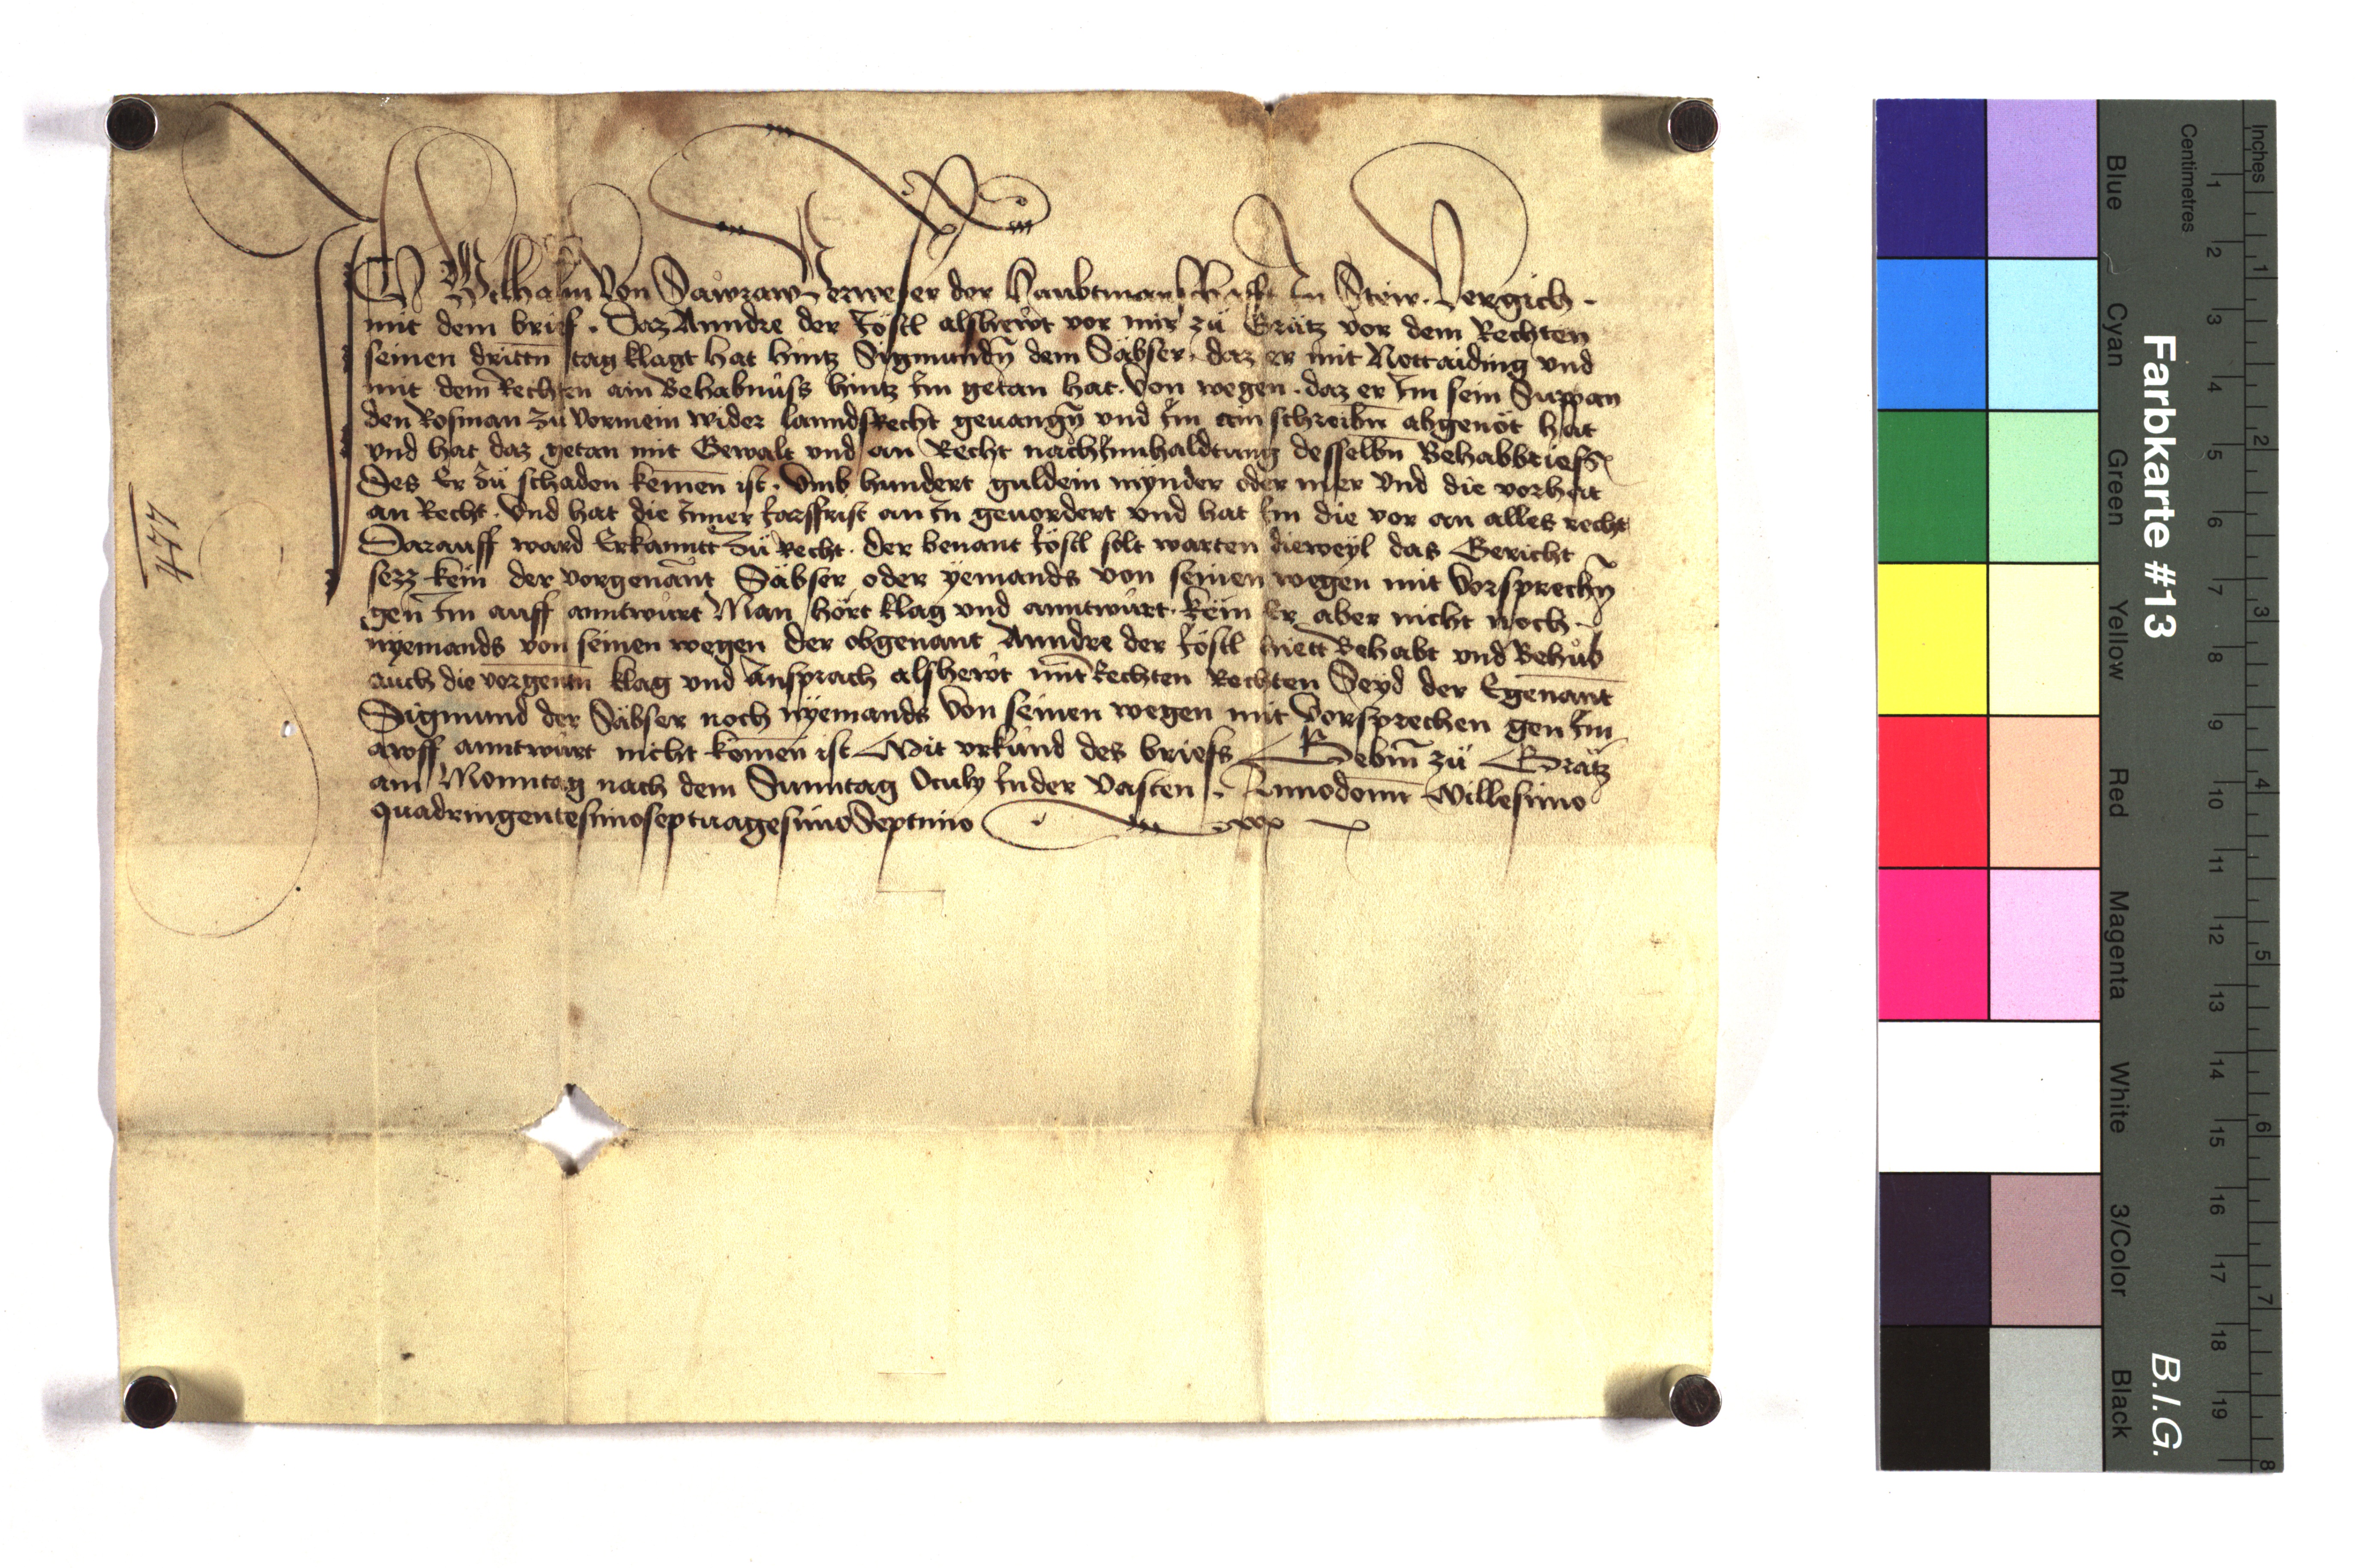 ICh Wilhalm von Sawraw Verweser der Haubtmanschafft In Steir. Vergich.
mit dem brief. Daz Anndre der Jöstl alshewt vor mir zü Grätz vor dem Rechten
seinen drittn̄ tag klagt hat hintz Sigmundn̄ dem Säbser. daz er mit Nottaiding vnd
mit dem Rechten ain Behabnüss hintz Im getan hat. Von wegen. daz er Im sein Suppan
den Rosman zü Vormein wider lanndsRecht geuangn̄ vnd Im ain schreibn̄ abgenöt hat
vnd hat daz getan mit Gewalt vnd an Recht nach Innhaldtung desselbn̄ Behabbriefs
Des Er zü schaden kemen̄ ist. Vmb hundert guldein mÿnder oder mer Vnd die vorhat
an Recht. Vnd hat die Inner Jarssfrist an In geuordert vnd hat Im die vor an alles recht
Darauff ward Erkanntt zü Recht. der benant Jöstl solt warten dieweÿl das Gericht
sezz kem̄ der vorgenānt Säbser oder ÿemands von seinen wegen mit Vorsprechn̄
gen Im auff anntwürt Man hört klag vnd anntwürt. kem̄ Er aber nicht noch
nÿemands von seinen wegen der obgenant Anndre der Jöstl hiett Behabt vnd Behůb
auch die vorgentn̄ klag vnd Ansprach alshewt mit Rechten Rechten Seÿd der Egenānt
Sigmund der Säbser noch nÿemands Von seinen wegen mit Vorsprechen gen Im
awff anntwürt nicht komen̄ ist Mit vrkünd des briefs Gebm̄ zü Grätz
am Monntag nach dem Sunntag Oculy In der Vasten. Annodomī Millesimo
quadringentesimoseptuagesimoSeptimo
477
Farbkarte #13
B.I.G.
Blue
Cyan
Green
Yellow
Red
Magenta
White
3/Color
Black
Centimetres
1 2 3 4 5 6 7 8 9 10 11 12 13 14 15 16 17 18 19
Inches
1 2 3 4 5 6 7 8